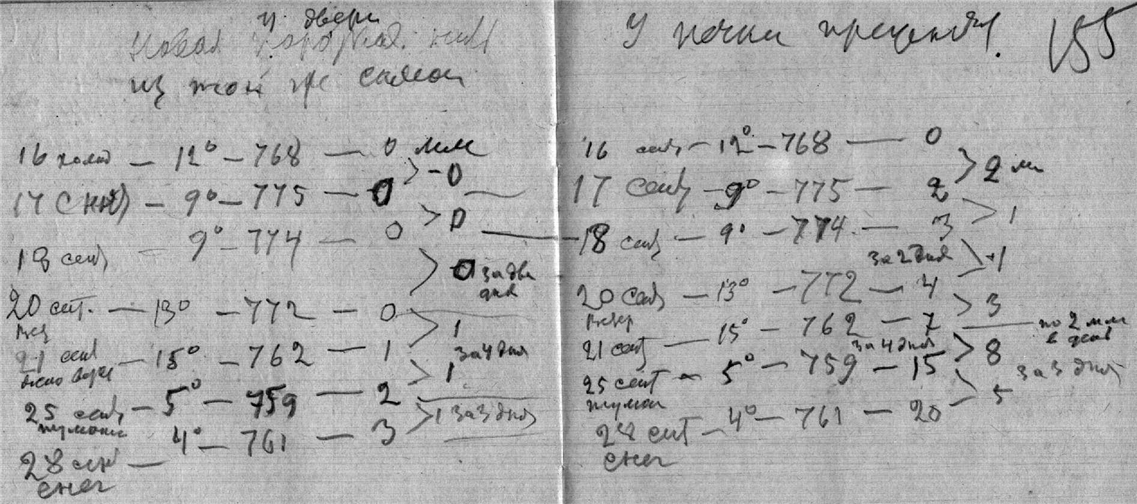 у двери
Новая
из той же самой
16 – 12° – 768 — 0 мм
> – 0
17 – 9° – 775 — 0
> 0
18 сент – 9° – 774 — 0
> 0 за два дня
20 сент. – 13° – 772 — 0
> 1
21 сент – 15° – 762 — 1
> 1 за 4 дня
25 сент – 5° – 759 — 2
туман
> 1 за 3 дня
28 – 4° – 761 — 3
снег
У почки
155
16 сент – 12° – 768 — 0
> 2 мм
17 сент – 9° – 775 — 2
> 1
18 сент – 9° – 774 — 3
> 1
за 2 дня
20 сент – 13° – 772 – 4
> 3
21 сент – 15° – 762 – 7
— по 2 мм в день
> 8
за 4 дня
25 сент – 5° – 759 – 15
туман
> 5
за 3 дня
28 сент – 4° – 761 – 20
снег